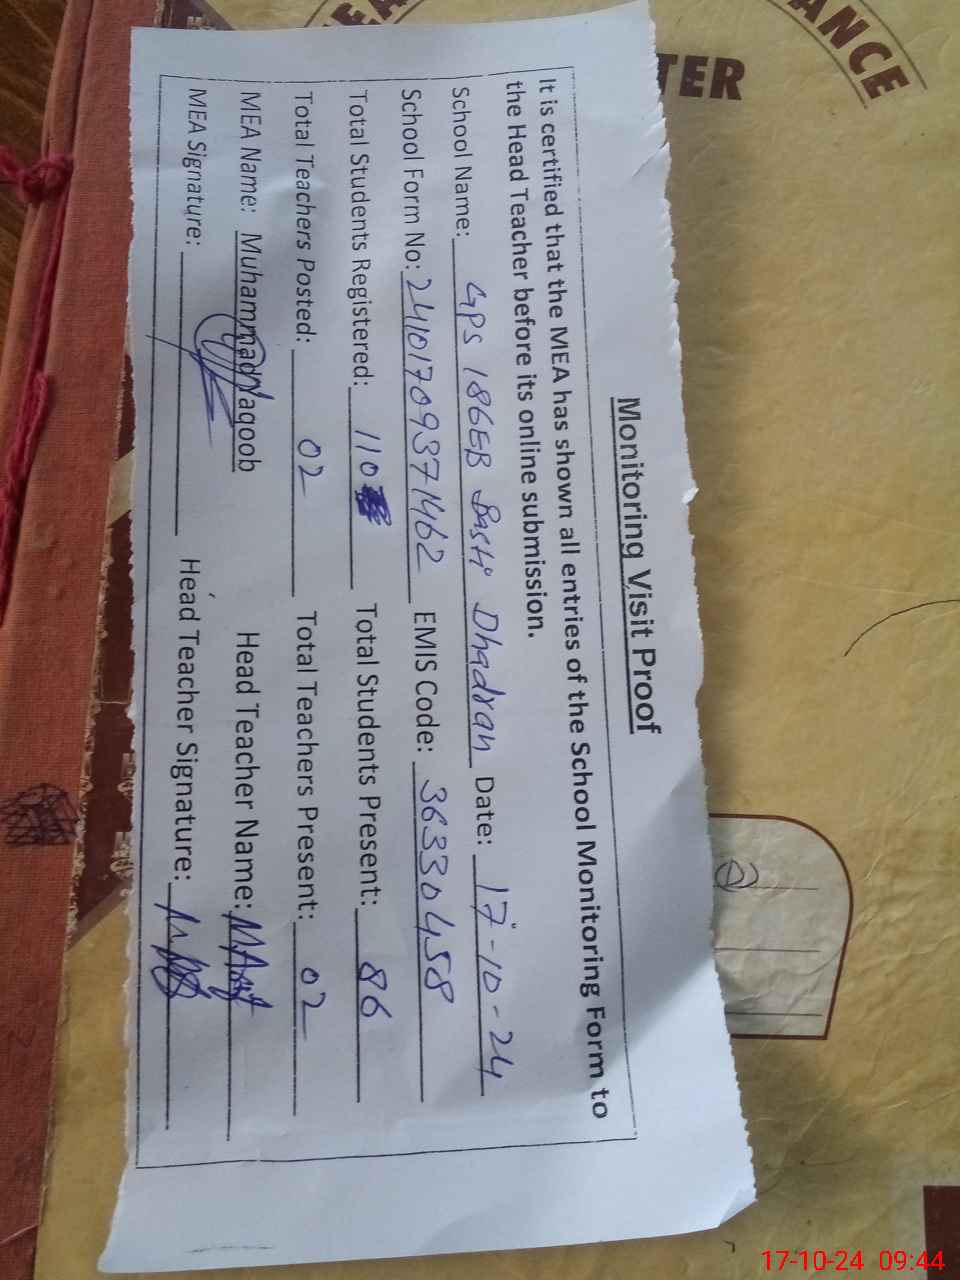 ANCE
TER
Monitoring Visit Proof
It is certified that the MEA has shown all entries of the School Monitoring Form to
the Head Teacher before its online submission.
School Name: GPS 186EB Basti Dhadran Date: 17-10-24
School Form No: 24101709371462 EMIS Code: 36330458
Total Students Registered: 110 Total Students Present: 86
Total Teachers Posted: 02 Total Teachers Present: 02
MEA Name: Muhammad Yaqoob Head Teacher Name:
MEA Signature: Head Teacher Signature:
17-10-24 09:44